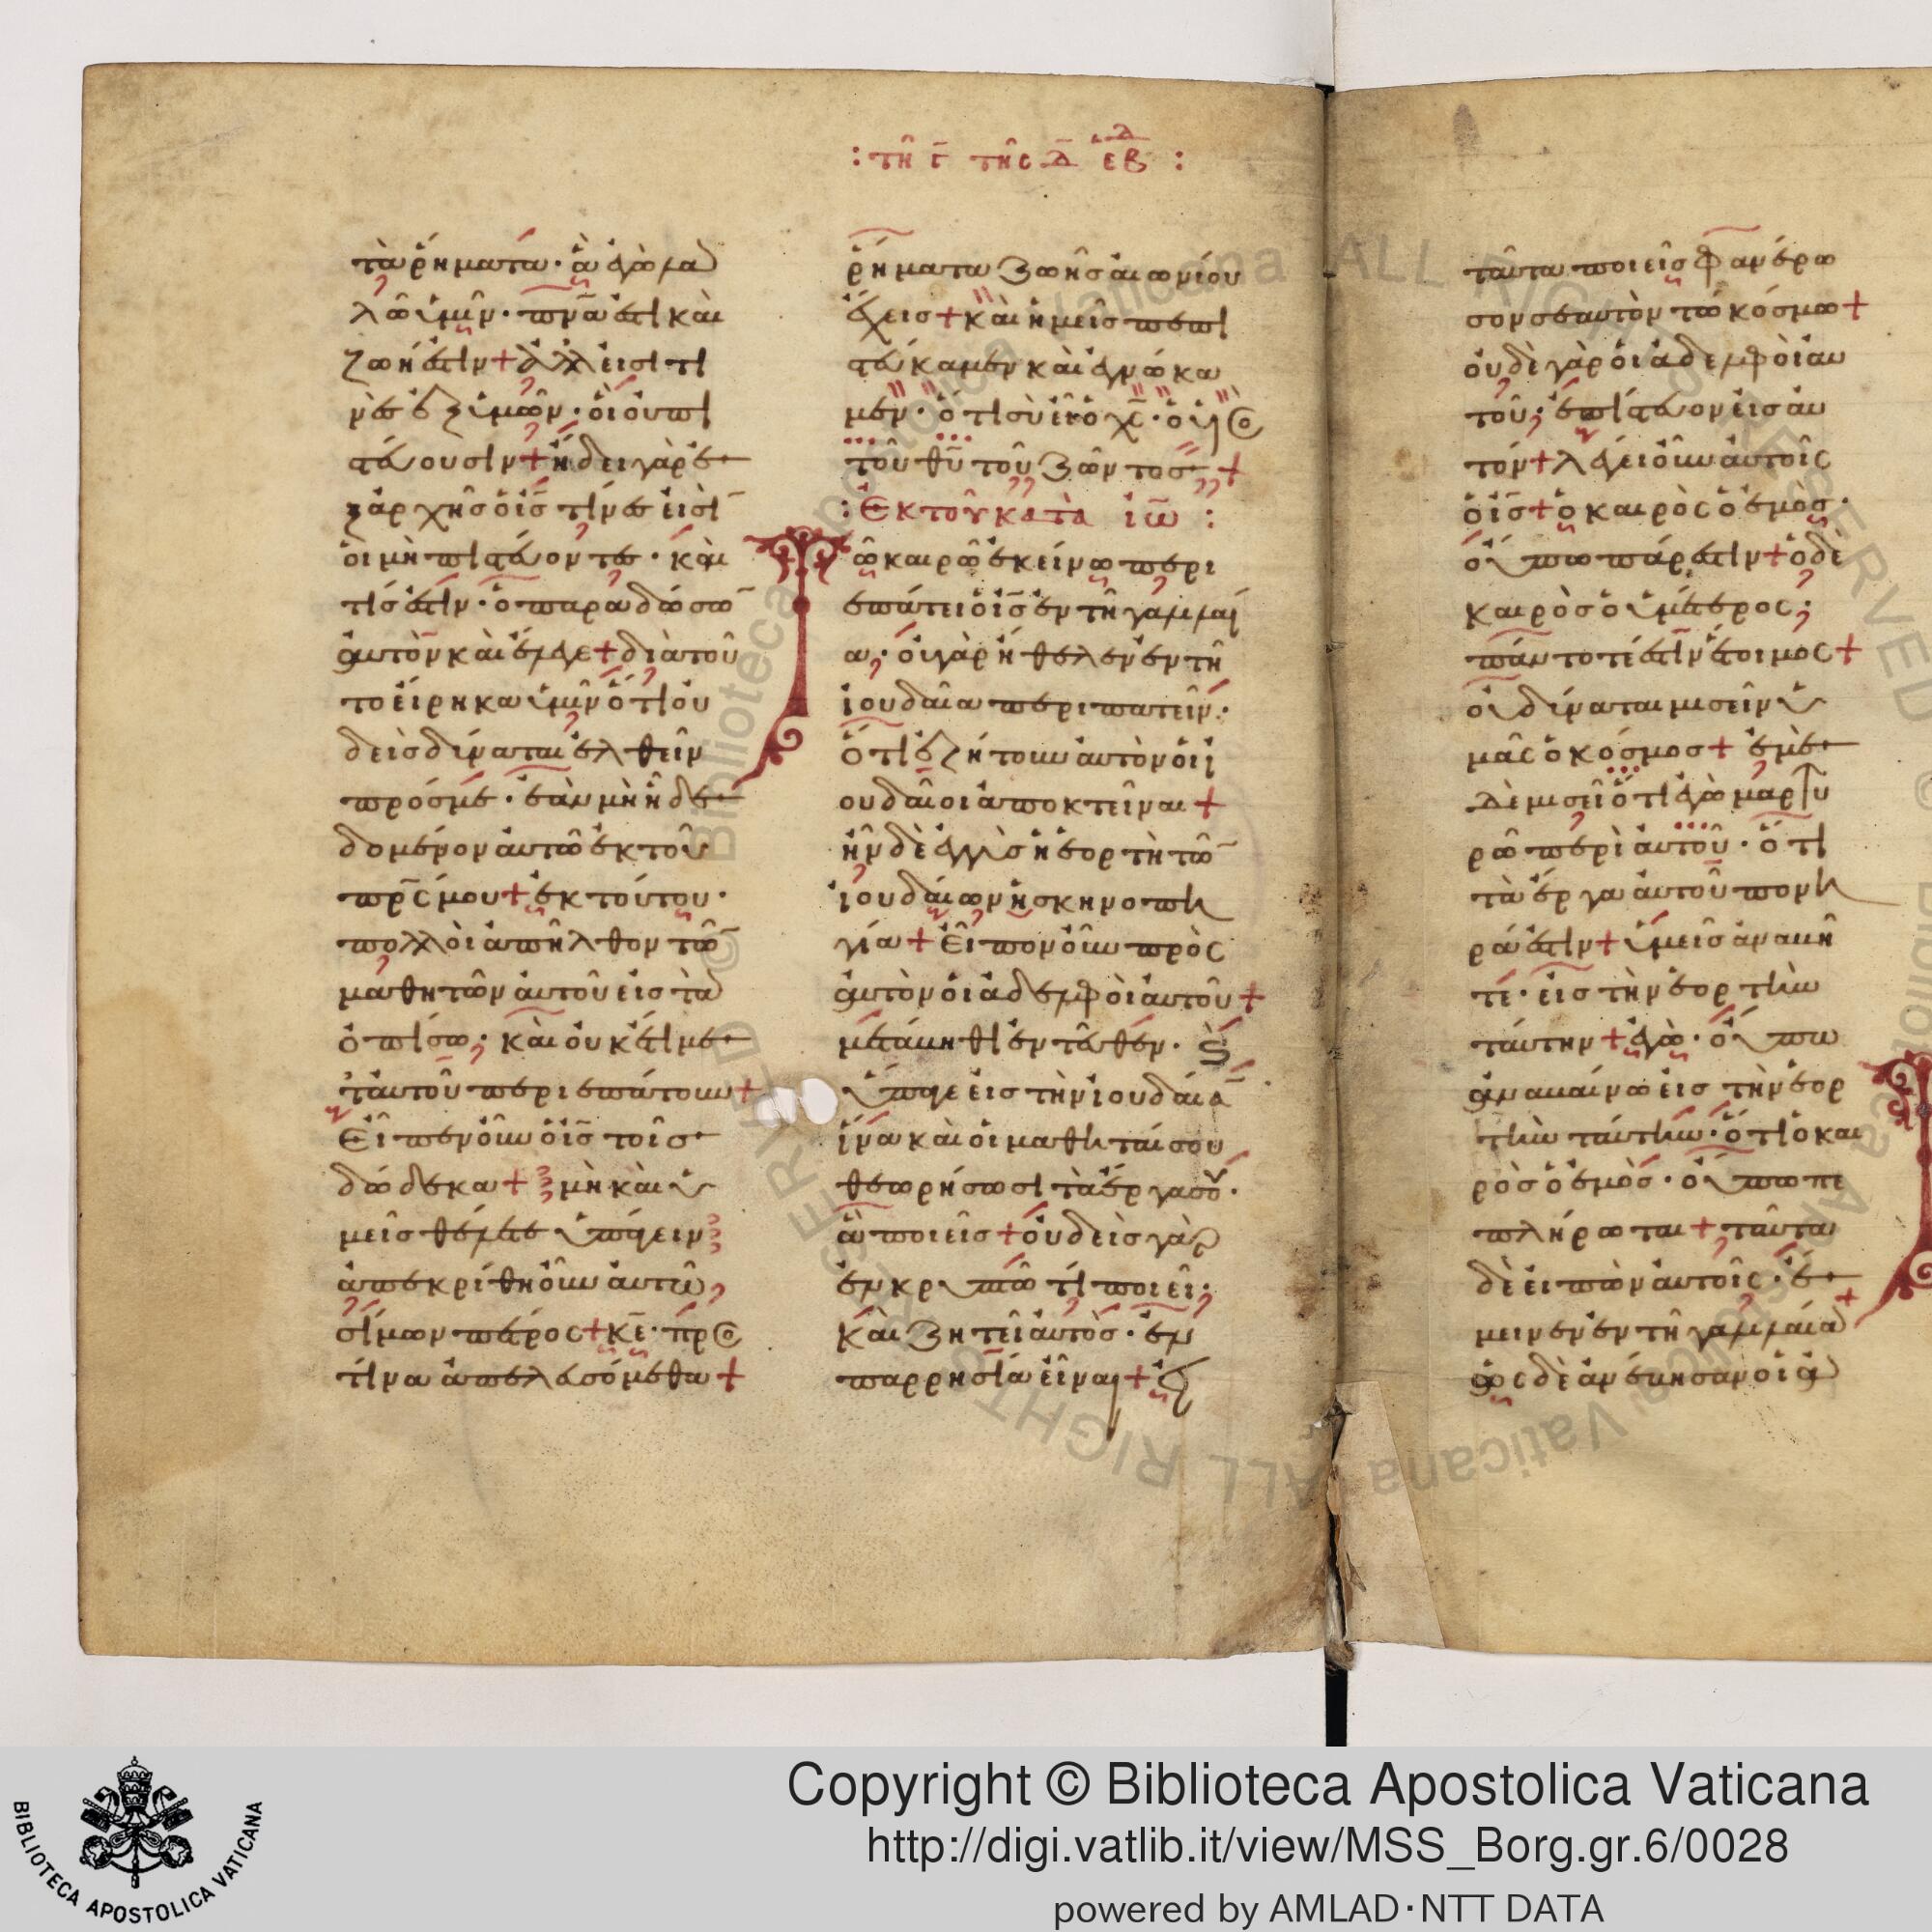 : τῆ γ̄ τῆς δ̄ ἑβδ :
τὰ ῥήματα· ἃ ἐγὼ λα
λῶ ὑμῖν· πν̅ᾱ ἐστι καὶ
ζωή ἐστιν + ἀλλ εἰσί τι
νὲς ἐξ ὑμῶν· οἳ οὐ πι
στεύουσιν + ᾔδει γὰρ ἐ
ξ ἀρχῆς ὁ ι̅ς̅ τίνες εἰσὶ̄
οἱ μὴ πιστεύοντες· καὶ
τίς ἐστιν· ὁ παραδώσω̄
αὐτὸν καὶ ἔλεγε + διὰ τοῦ
το εἴρηκα ὑμῖν ὅτι οὐ
δεὶς δύναται ἐλθεῖν
πρός με· ἐὰν μὴ ἦ δε
δομένον αὐτῶ ἐκ τοῦ
π̅ρ̅ς̅ μου + ἐκ τούτου·
πολλοὶ ἀπῆλθον τῶ̄
μαθητῶν αὐτοῦ εἰς τὰ
ὀπίσω· καὶ οὐκέτι με
τ αὐτοῦ περιεπάτουν +
Εἶπεν οὖν ὁ ι̅ς̅ τοῖς
δώδεκα + μὴ καὶ ὑ
μεῖς θέλετε ὑπάγειν
ἀπεκρίθη οὖν αὐτῶ
σίμων πέτρος + κ̅ε̅· πρὸς
τίνα ἀπελευσόμεθα +
ῥήματα ζωῆς αἰωνίου
ἔχεις + καὶ ἡμεῖς πεπι
στεύκαμεν καὶ ἐγνώκα
μεν· ὅτι σὺ εἶ ὁ χ̅ς̅· ὁ υἱὸς
τοῦ θ̅υ̅ τοῦ ζῶντος +
: Ἐκ τοῦ κατὰ ἰω̅ :
Τῶ καιρῶ ἐκείνω περι
επάτει ὁ ι̅ς̅ ἐν τῆ γαλιλαί
α· οὐ γὰρ ἤθελεν ἐν τῆ
ἰουδαία περιπατεῖν·
ὅτι ἐζήτουν αὐτὸν οἱ ἰ
ουδαῖοι ἀποκτεῖναι +
ἦν δὲ ἐγγὺς ἡ ἑορτὴ τῶ̄
ἰουδαίων ἡ σκηνοπη
γία + Εἶπον οὖν πρὸς
αὐτὸν οἱ ἀδελφοὶ αὐτοῦ +
μετάβηθι ἐντεῦθεν· καὶ
ὕπαγε εἰς τὴν ἰουδαίᾱ
ἵνα καὶ οἱ μαθηταί σου
θεωρήσωσι τὰ ἔργα σου·
ἃ ποιεῖς + οὐδεὶς γὰρ
ἐν κρυπτῶ τί ποιεῖ·
καὶ ζητεῖ αὐτὸς· ἐν
παρρησία εἶναι + εἰ
ταῦτα ποιεῖς φανέρω
σον σεαυτὸν τῶ κόσμω +
οὐδὲ γὰρ οἱ ἀδελφοὶ αυ
τοῦ· ἐπίστευον εἰς αυ
τόν + λέγει οὖν αὐτοῖς
ὁ ι̅ς̅ + ὁ καιρὸς ὁ ἐμὸς·
οὔπω πάρεστιν + ὁ δὲ
καιρὸς ὁ ὑμέτερος·
πάντοτέ ἐστιν ἕτοιμος +
οὐ δύναται μισεῖν ὑ
μᾶς ὁ κόσμος + ἐμὲ
δὲ μισεῖ ὅτι ἐγὼ μαρτυ
ρῶ περὶ αὐτοῦ· ὅτι
τὰ ἔργα αὐτοῦ πονη
ρά ἐστιν + ὑμεῖς ἀνάβη
τε· εἰς τὴν ἑορτὴν
ταύτην + ἐγὼ· οὔπω
ἀναβαίνω εἰς τὴν ἑορ
τὴν ταύτην· ὅτι ὁ και
ρὸς ὁ ἐμὸς· οὔπω πε
πλήρωται + ταῦτα
δὲ εἰπὼν αὐτοῖς· ἔ
μεινεν ἐν τῆ γαλιλαία +
ὡς δὲ ἀνέβησαν οἱ ἀ
BIBLIOTECA APOSTOLICA VATICANA
Copyright © Biblioteca Apostolica Vaticana
http://digi.vatlib.it/view/MSS_Borg.gr.6/0028
powered by AMLAD·NTT DATA